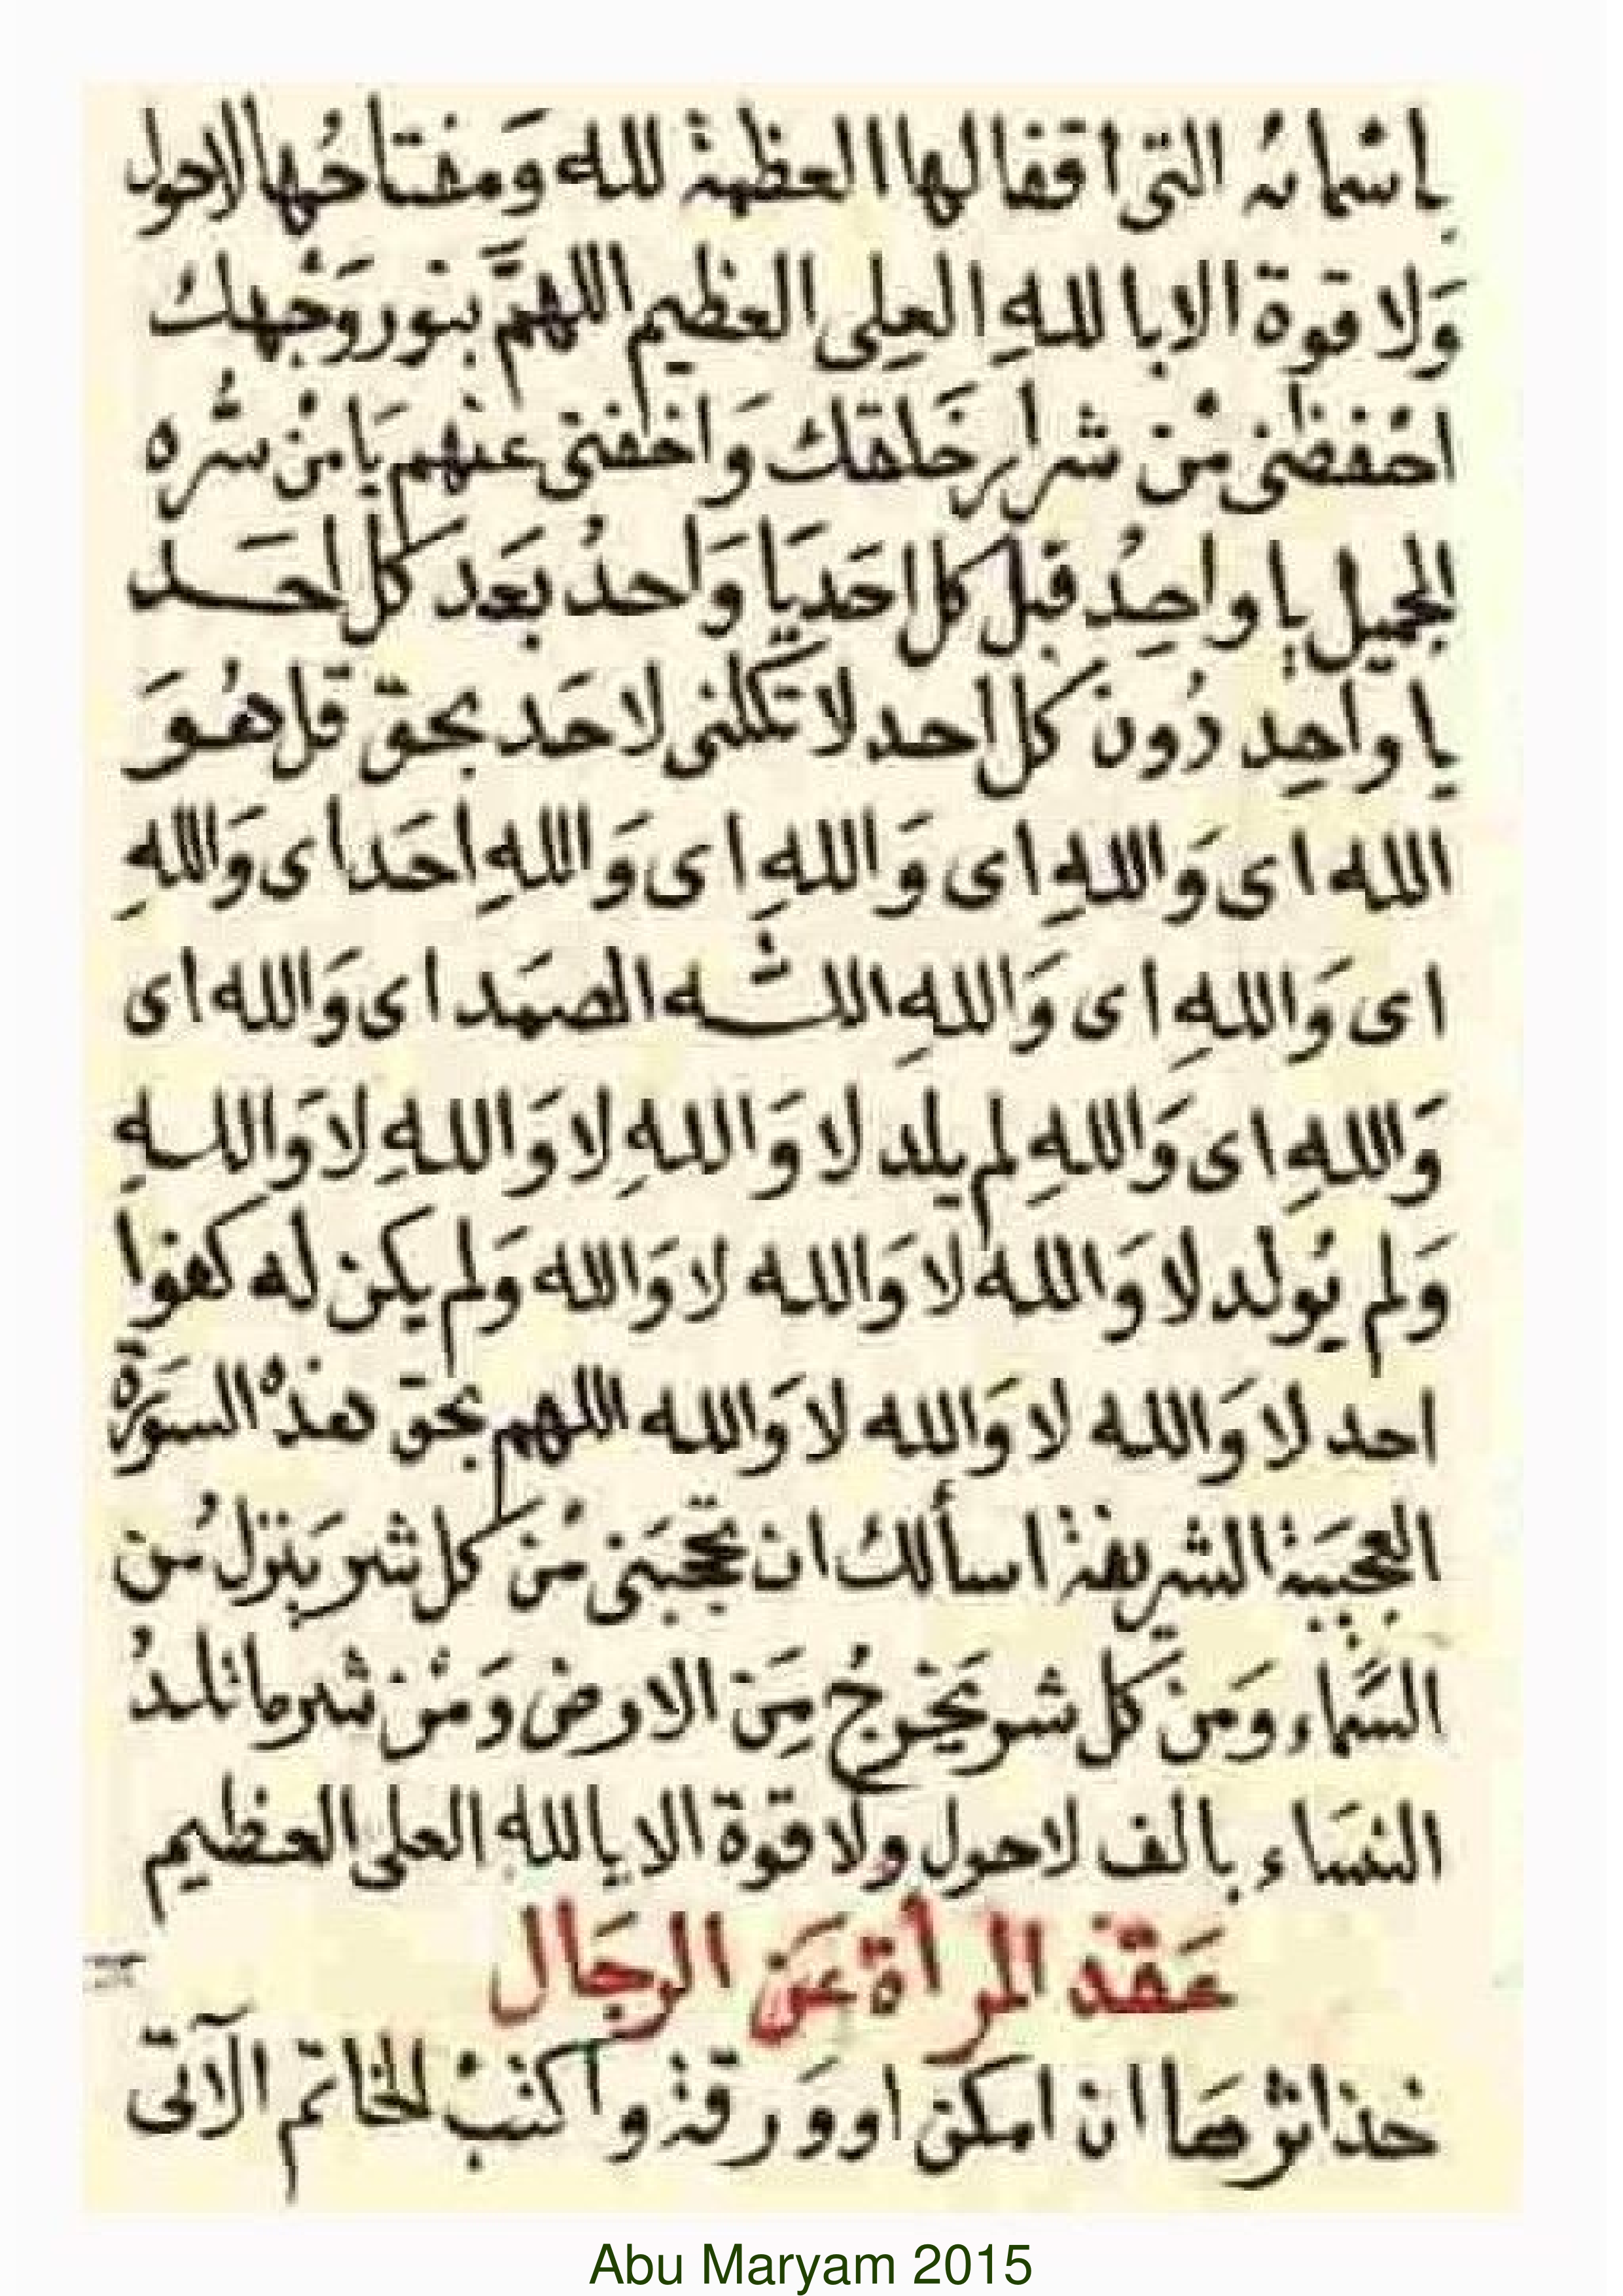 بإسمائه التى اقفالها العظمة لله وَمفتاحُها لاحول
وَلا قوة الا باللهِ العلِى العظيم اللهمَّ بنور وَجْهك
احْفظنى منْ شرار خَلقك وَاخفنى عنهم يَامنْ سْره
الجميل يا واحِدُ قبل كل احَد يَا وَاحدُ بَعَد كل احَـد
يا واحِد دُونَ كل احد لا تكلنى لاحَد بحقّ قل هُـوَ
الله اى وَاللهِ اى وَاللهِ اى وَاللهِ احَد اى وَاللهِ
اى وَاللهِ اى وَاللهِ اللـه الصمَد اى وَالله اى
وَاللهِ اى وَاللهِ لم يلد لا وَاللهِ لا وَاللهِ لا وَاللـهِ
وَلم يُولد لا وَالله لا وَالله لا وَالله وَلم يكن له كفوا
احد لا وَالله لا وَالله لا وَالله اللهم بحق هذه السورَة
العجَيبة الشريفة اسألك ان تجَنبَنى منْ كل شر يَنزلُ من
السَّماء وَمَن كل شر يَخرجُ مِنَ الارض وَمنْ شر ما تلدُ
النسَاء بالف لاحول ولا قوة الا بالله العلى العظيم
عَقد المرأة عَن الرجَال
خذ اثرهَا ان امكن او وَرقة واكتبْ الخاتم الآتى
Abu Maryam 2015